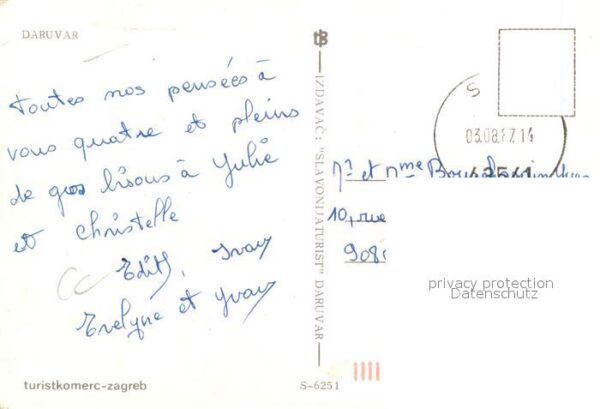 DARUVAR
tB
Toutes nos pensées à
vous quatre et pleins
de gros bisous à Julie
et Christelle
Edith, Ivan
Evelyne et Yvan
turistkomerc-zagreb
IZDAVAČ: "SLAVONIJATURIST" DARUVAR
S-6251
S
03.08.87.14
Mr et Mme
10, rue
908
privacy protection
Datenschutz